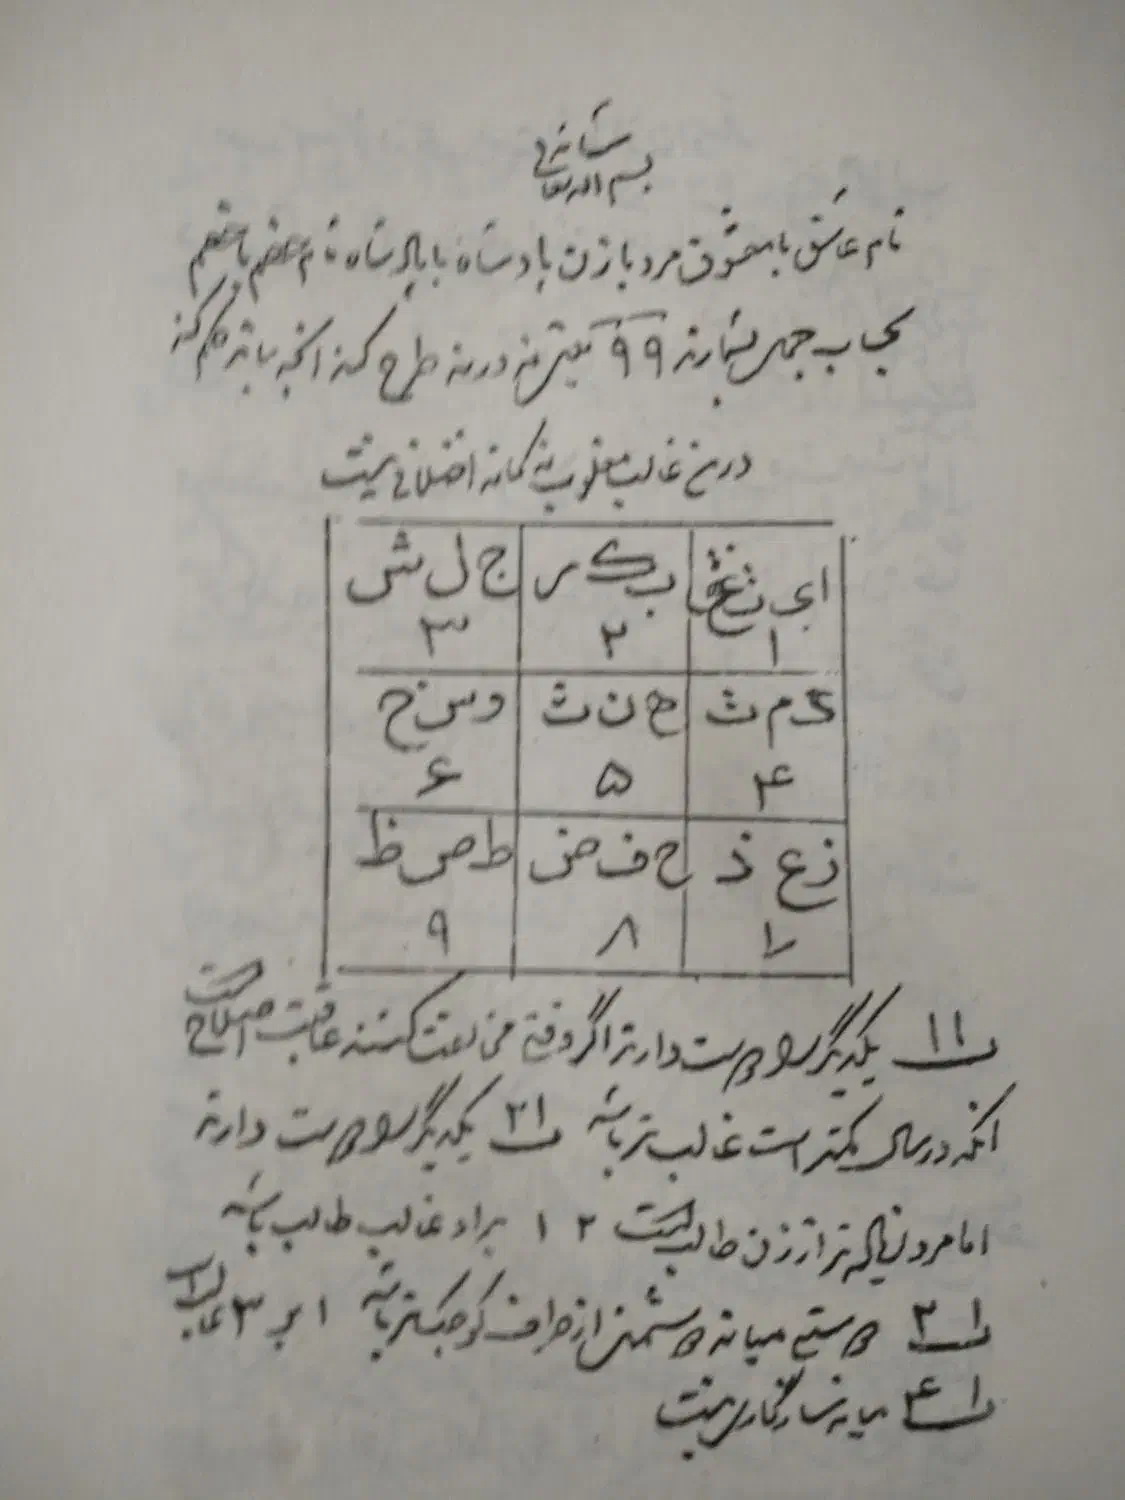 بسم الله تعالی شانه
نام عاشق با معشوق مرد با زن پادشاه با پادشاه نام خصم با خصم
بحساب جمل بشمارند ۹۹ طرح کند آنچه بماند حکم کند
درین غالب مغلوب اختلافی نیست
ا ی ق غ ب ک ر ج ل ش
۱ ۲ ۳
د م ت ه ن ث و س خ
۴ ۵ ۶
ز ع ذ ح ف ض ط ص ظ
۷ ۸ ۹
۱۱ یکدیگر را دوست دارند اگر وقتی مخالفت کنند عاقبت اصلاح است
آنکه در سال کمتر است غالب‌تر باشد ۲۱ یکدیگر را دوست دارند
اما مرد از زن طالب است ۲ ۱ براو غالب طالب باشد
۳۱ دوستی میانه دشمنی از طرف کوچکتر باشد ۱ بر ۳ غالب
۴۱ میانه سازگاری نیست